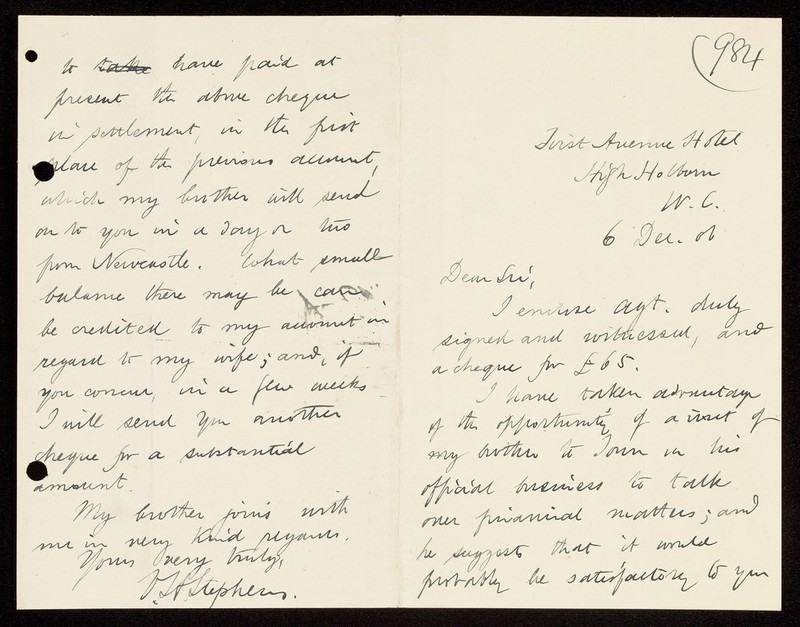 (984
First Avenue Hotel
High Holborn
W. C.
6 Dec. 06
Dear Sir,
I enclose agt. duly
signed and witnessed, and
a cheque for £65.
I have taken advantage
of the opportunity of a visit of
my brother to Town on his
official business to talk
over financial matters; and
he suggests that it would
probably be satisfactory to you
to take have paid at
present the above cheque
in settlement, in the first
place of the previous account,
which my brother will send
on to you in a day or two
from Newcastle. What small
balance there may be can
be credited to my account in
regard to my wife; and, if
you concur, in a few weeks
I will send you another
cheque for a substantial
amount.
My brother joins with
me in very kind regards.
Yours very truly,
Stephens.